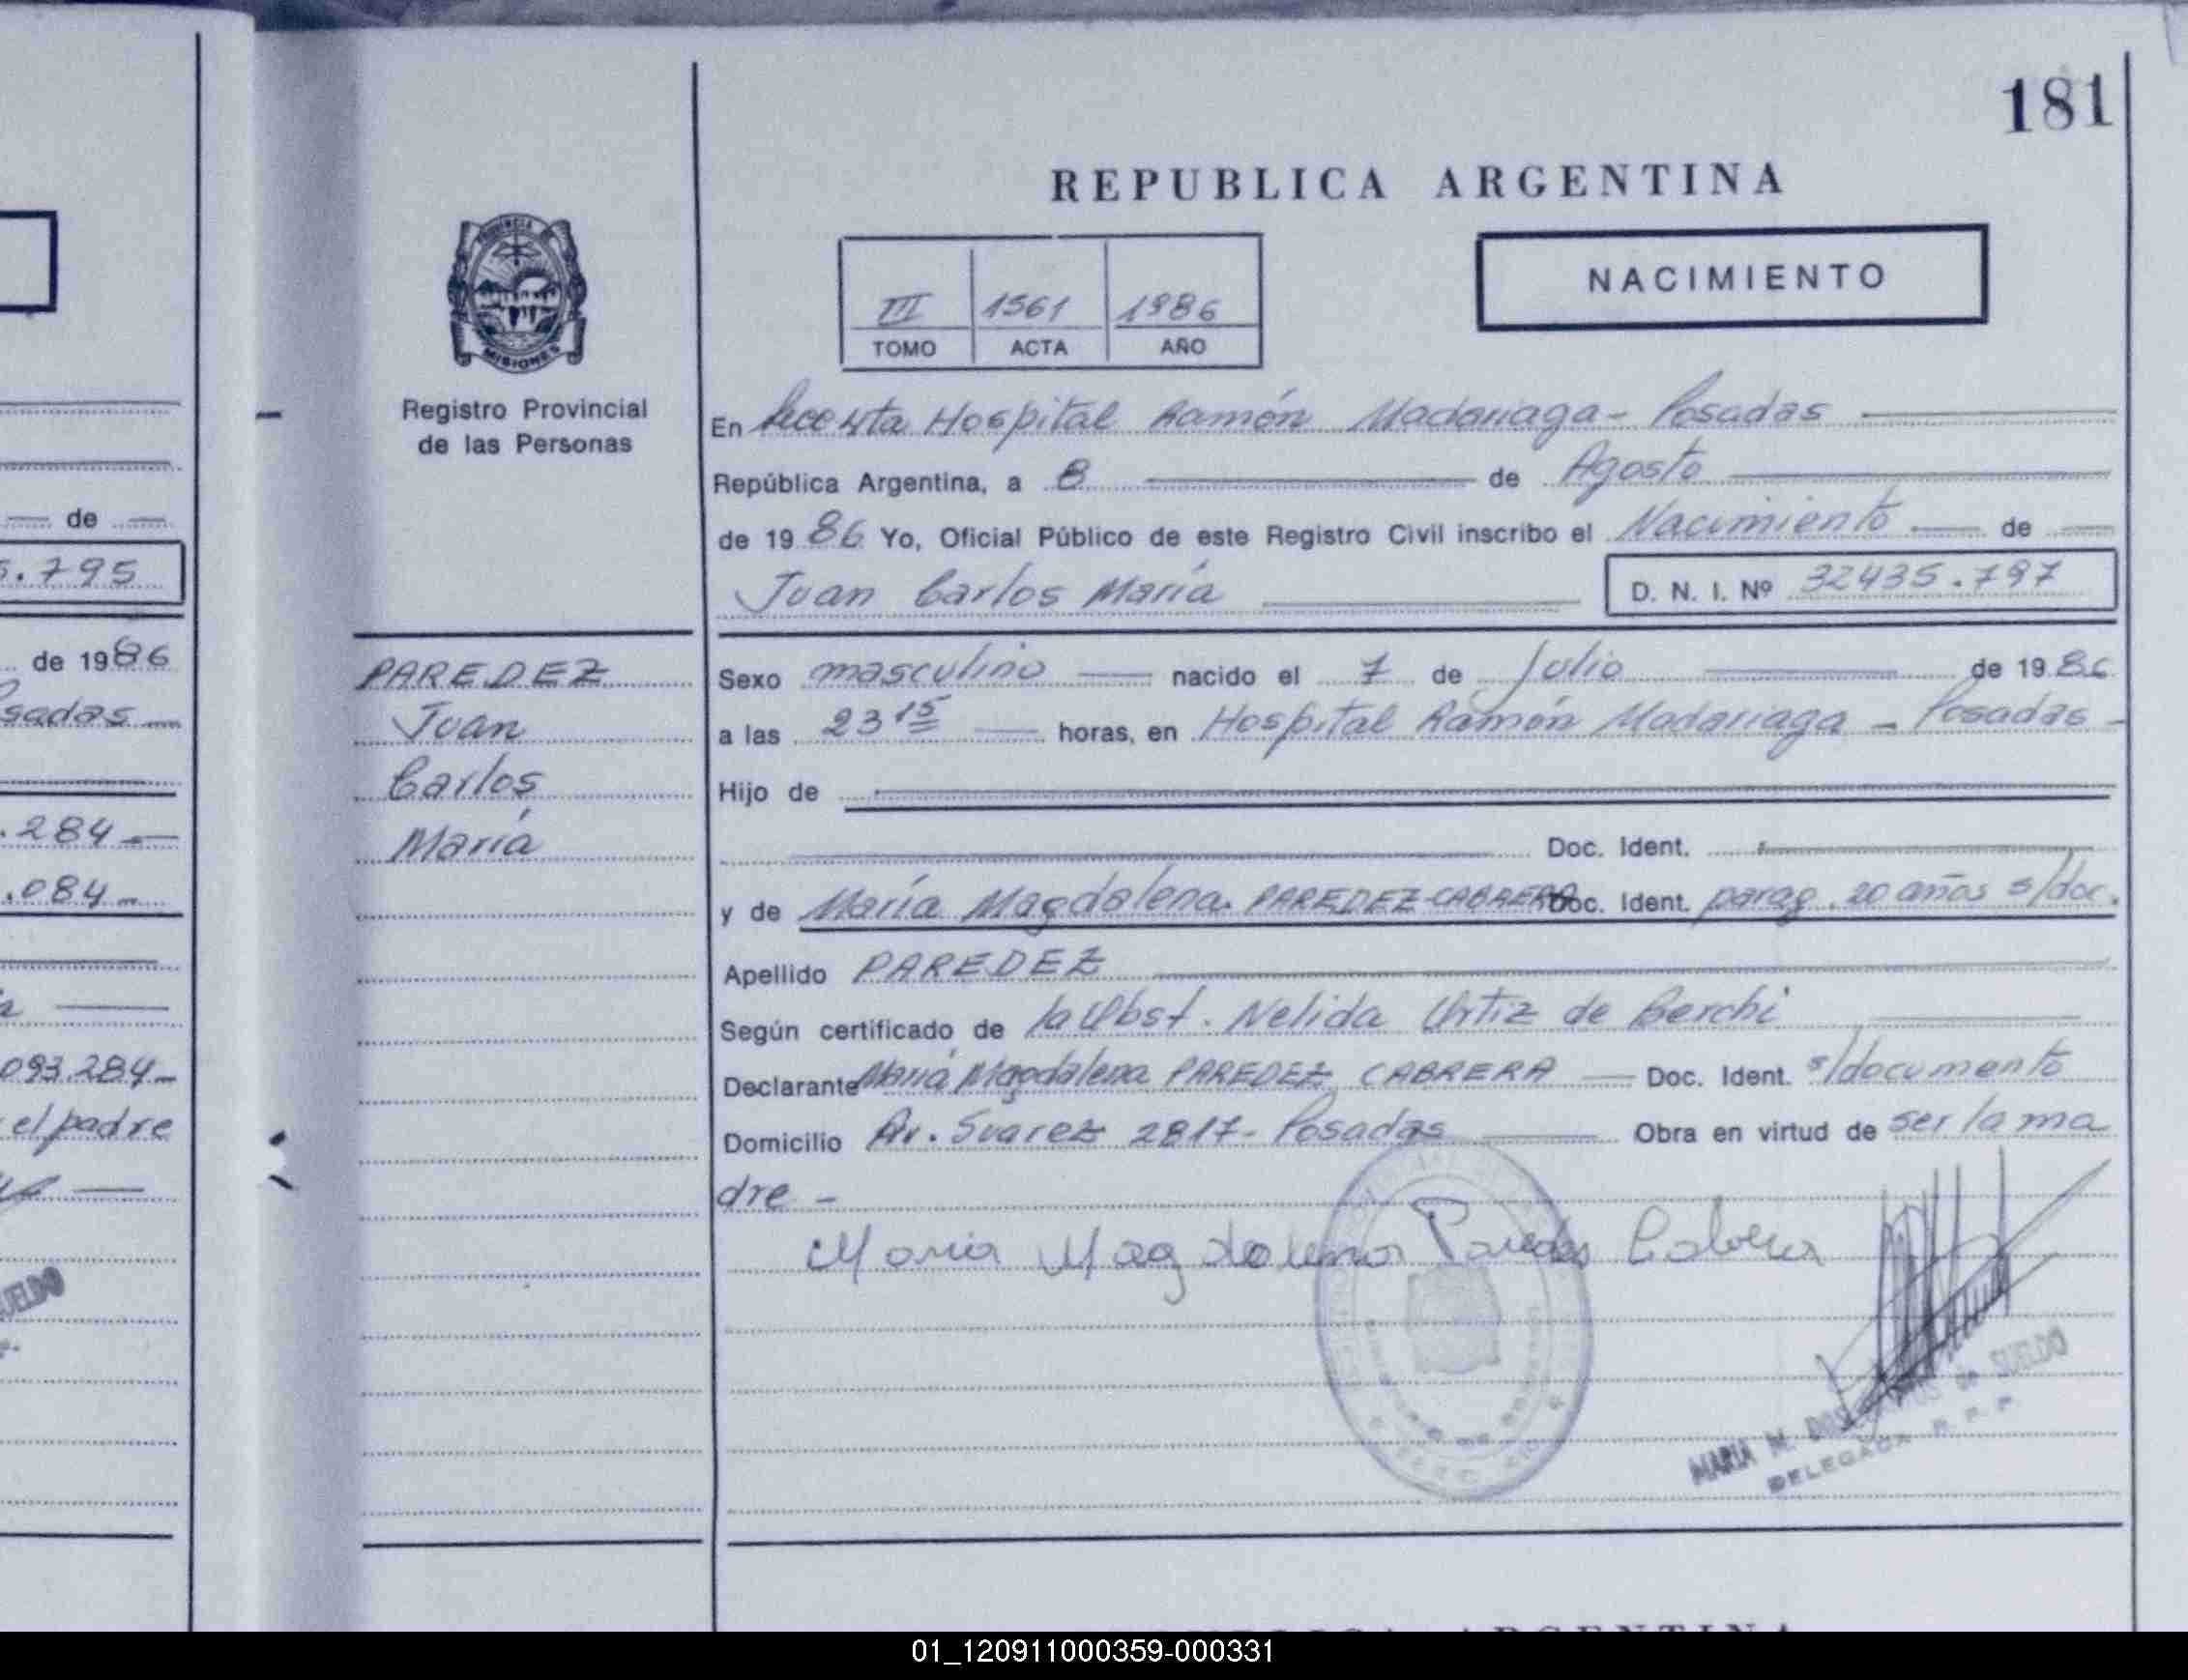 181
REPUBLICA ARGENTINA
PROVINCIA DE
MISIONES
Registro Provincial
de las Personas
III 1561 1986
TOMO ACTA AÑO
NACIMIENTO
En Hospital Ramón Madariaga - Posadas
República Argentina, a 8 de Agosto
de 1986 Yo, Oficial Público de este Registro Civil inscribo el Nacimiento de
Juan Carlos María D. N. I. Nº 32435.797
PAREDEZ
Juan
Carlos
María
Sexo masculino nacido el 7 de Julio de 1986
a las 23 15 horas, en Hospital Ramón Madariaga - Posadas -
Hijo de
Doc. Ident.
y de María Magdalena PAREDEZ CABRERA Doc. Ident. parag. 20 años s/doc.
Apellido PAREDEZ
Según certificado de la Obst. Nelida Ortiz de Berchi
Declarante María Magdalena PAREDEZ CABRERA Doc. Ident. s/documento
Domicilio Av. Suarez 2817 - Posadas Obra en virtud de ser la ma
dre -
Maria Magdalena Paredes Cabrera
MARIA M. DOS de SUELDO
DELEGADA R. P. P.
de
5.795
de 1986
sadas
.284
.084
093.284
el padre
UELDO
01_120911000359-000331